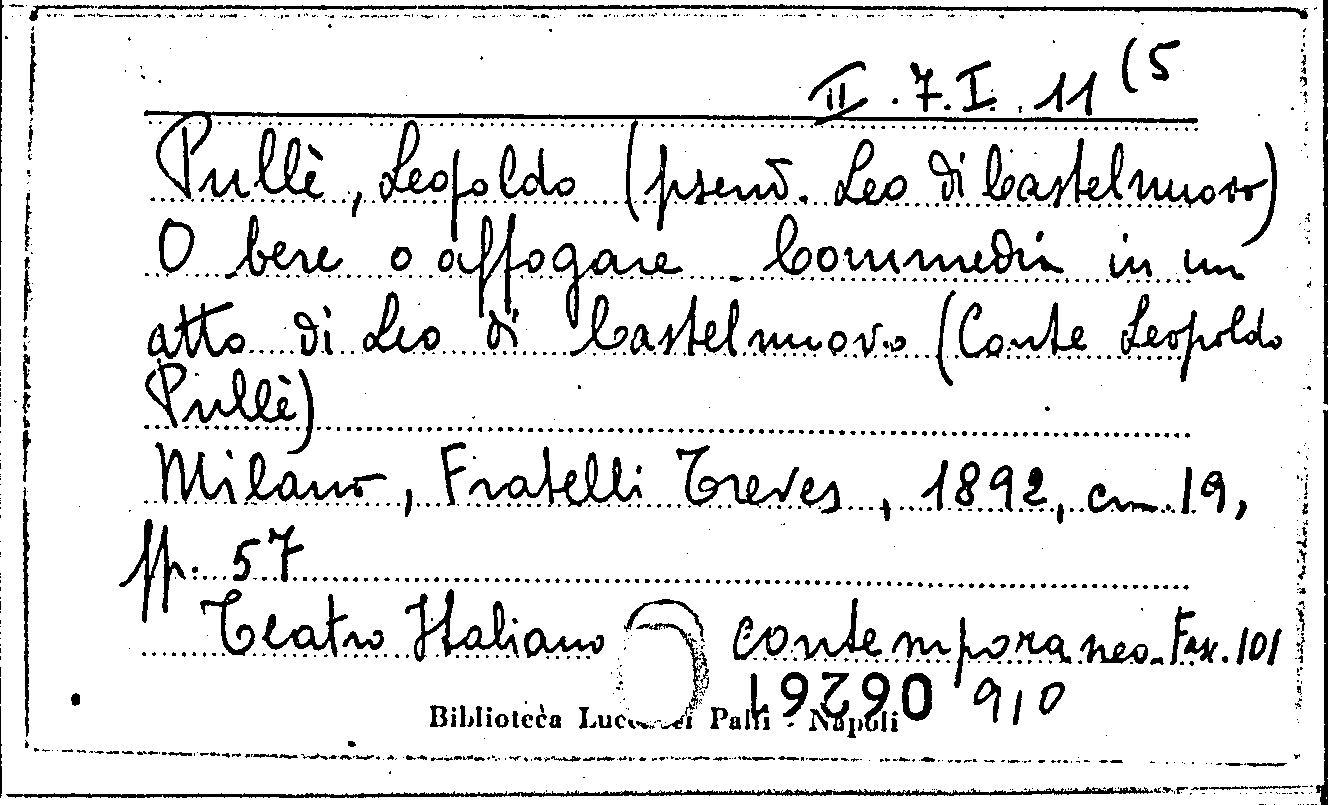 II. 7. I. 11 (5
Pullè, Leopoldo (pseud. Leo di Castelnuovo)
O bere o affogare. Commedia in un
atto di Leo di Castelnuovo (Conte Leopoldo
Pullè)
Milano, Fratelli Treves, 1892, cm. 19,
pp. 57
Teatro Italiano contemporaneo. Fasc. 101
062761 910
Biblioteca Lucchesi Palli - Napoli